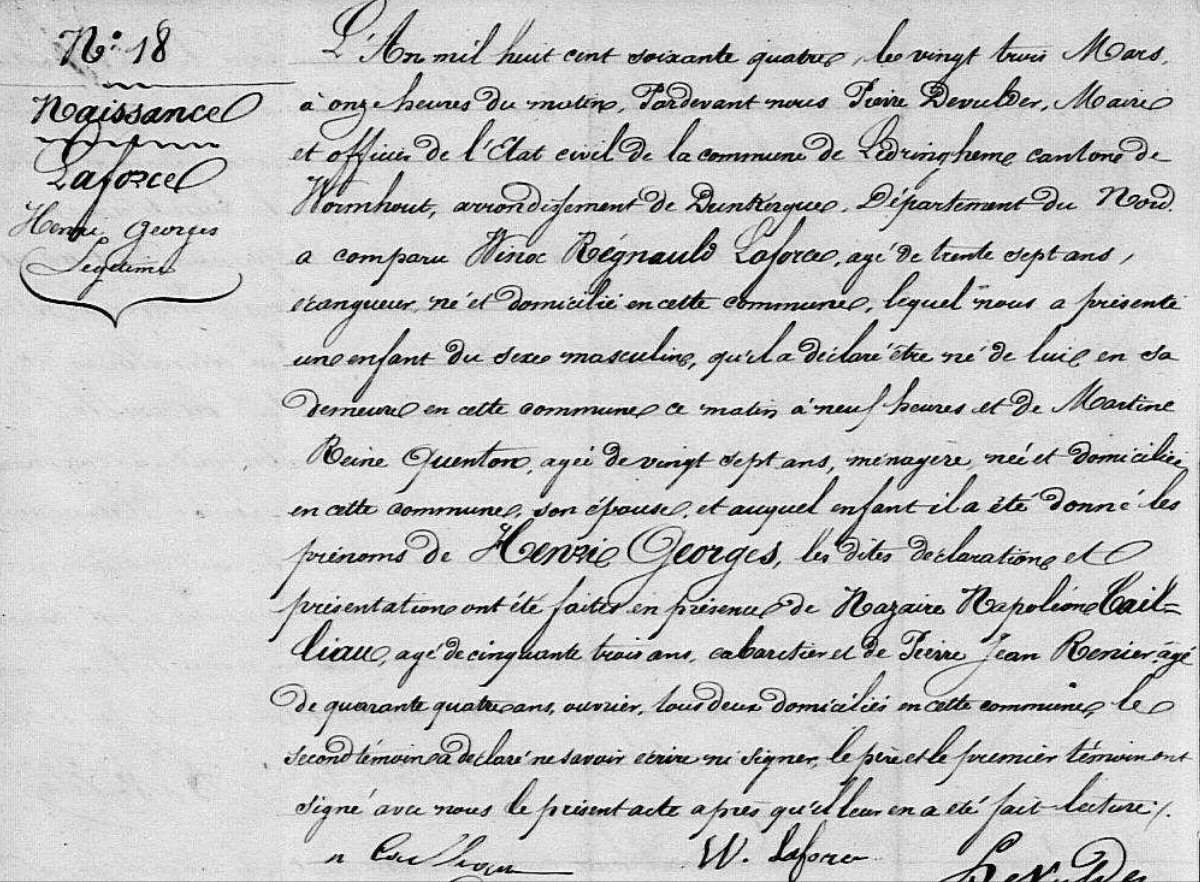 N.° 18
Naissance
Laforce
Henri Georges
Légitime
L'An mil huit cent soixante quatre, le vingt trois Mars,
à onze heures du matin, Pardevant nous Pierre Devulder, Maire
et officier de l'Etat civil de la commune de Lédringhem, canton de
Wormhout, arrondissement de Dunkerque, Département du Nord.
a comparu Winoc Régnauld Laforce, agé de trente sept ans,
écangueur, né et domicilié en cette commune, lequel nous a présenté
un enfant du sexe masculin, qu'il a déclaré être né de lui en sa
demeure en cette commune ce matin à neuf heures et de Martine
Reine Quenton, agée de vingt sept ans, ménagère, née et domiciliée
en cette commune, son épouse, et auquel enfant il a été donné les
prénoms de Henri Georges, les dites déclaration et
présentation ont été faites en présence de Nazaire Napoléon Cail=
liau, agé de cinquante trois ans, cabaretier et de Pierre Jean Renier, agé
de quarante quatre ans, ouvrier, tous deux domiciliés en cette commune, le
second témoin a déclaré ne savoir écrire ni signer, le père et le premier témoin ont
signé avec nous le présent acte après qu'il leur en a été fait lecture ./.
W. Laforce
Devulder